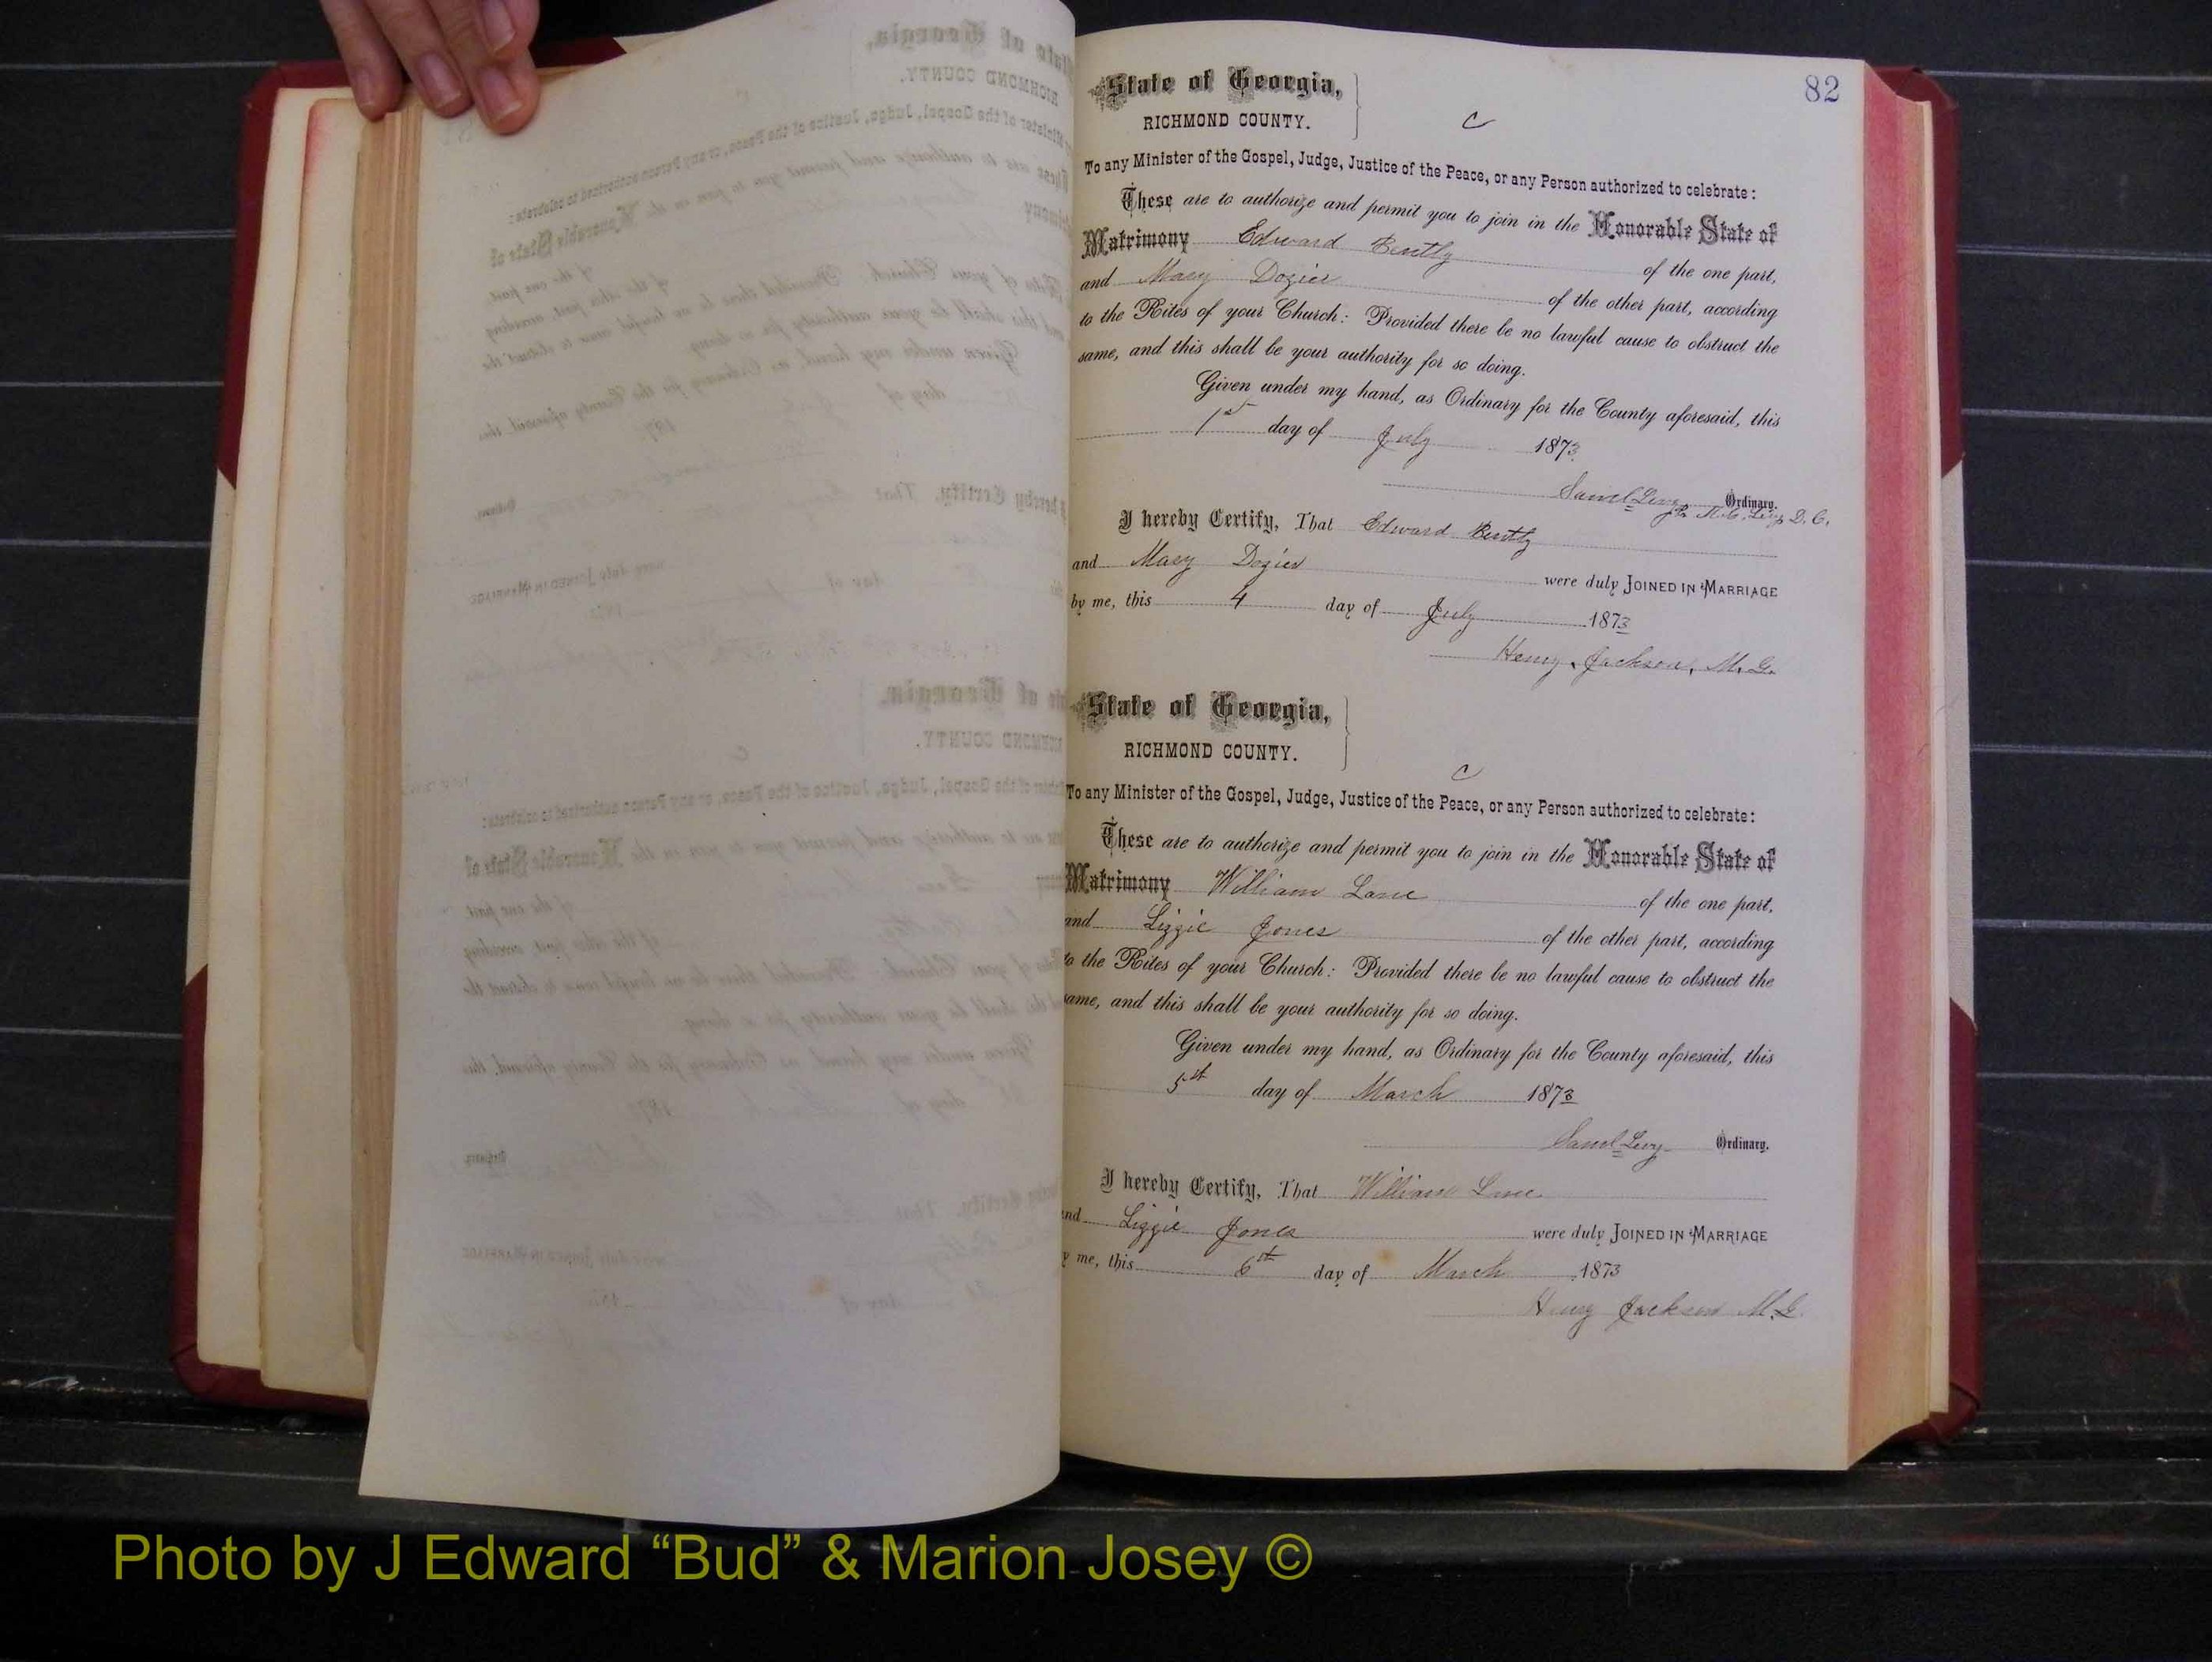 82
State of Georgia,
RICHMOND COUNTY.
C
To any Minister of the Gospel, Judge, Justice of the Peace, or any Person authorized to celebrate:
These are to authorize and permit you to join in the Honorable State of
Matrimony Edward Bently of the one part,
and Mary Dozier of the other part, according
to the Rites of your Church: Provided there be no lawful cause to obstruct the
same, and this shall be your authority for so doing.
Given under my hand, as Ordinary for the County aforesaid, this
1st day of July 1873
Saml Levy Ordinary.
M.C. Levy D.C.
I hereby Certify, That Edward Bently
and Mary Dozier were duly JOINED IN MARRIAGE
by me, this 4 day of July 1873
Henry Jackson, M.G.
State of Georgia,
RICHMOND COUNTY.
C
To any Minister of the Gospel, Judge, Justice of the Peace, or any Person authorized to celebrate:
These are to authorize and permit you to join in the Honorable State of
Matrimony William Lane of the one part,
and Lizzie Jones of the other part, according
to the Rites of your Church: Provided there be no lawful cause to obstruct the
same, and this shall be your authority for so doing.
Given under my hand, as Ordinary for the County aforesaid, this
5th day of March 1873
Saml Levy Ordinary.
I hereby Certify, That William Lane
and Lizzie Jones were duly JOINED IN MARRIAGE
by me, this 6th day of March 1873
Henry Jackson M.G.
Photo by J Edward “Bud” & Marion Josey ©